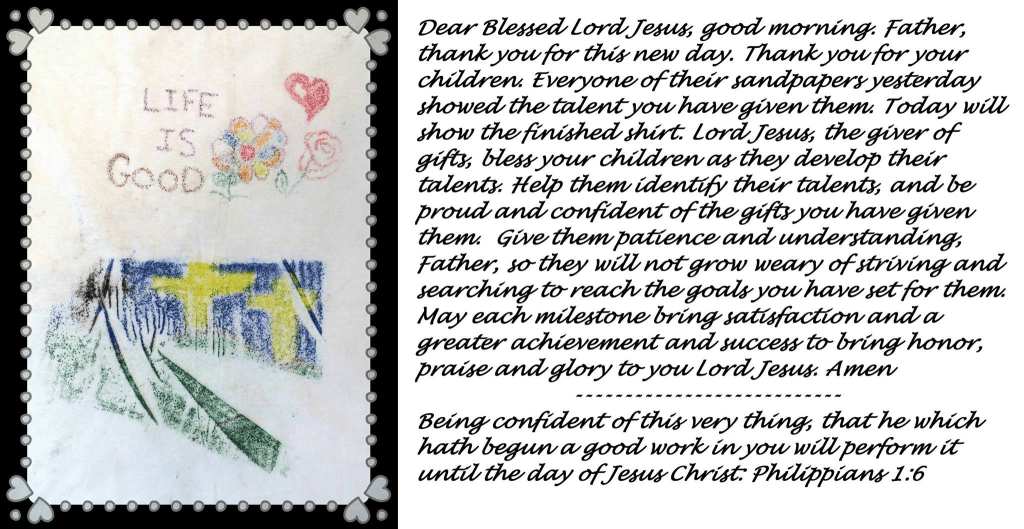 LIFE
IS
GOOD
Dear Blessed Lord Jesus, good morning. Father,
thank you for this new day. Thank you for your
children. Everyone of their sandpapers yesterday
showed the talent you have given them. Today will
show the finished shirt. Lord Jesus, the giver of
gifts, bless your children as they develop their
talents. Help them identify their talents, and be
proud and confident of the gifts you have given
them.  Give them patience and understanding,
Father, so they will not grow weary of striving and
searching to reach the goals you have set for them.
May each milestone bring satisfaction and a
greater achievement and success to bring honor,
praise and glory to you Lord Jesus. Amen
---------------------------
Being confident of this very thing, that he which
hath begun a good work in you will perform it
until the day of Jesus Christ: Philippians 1:6